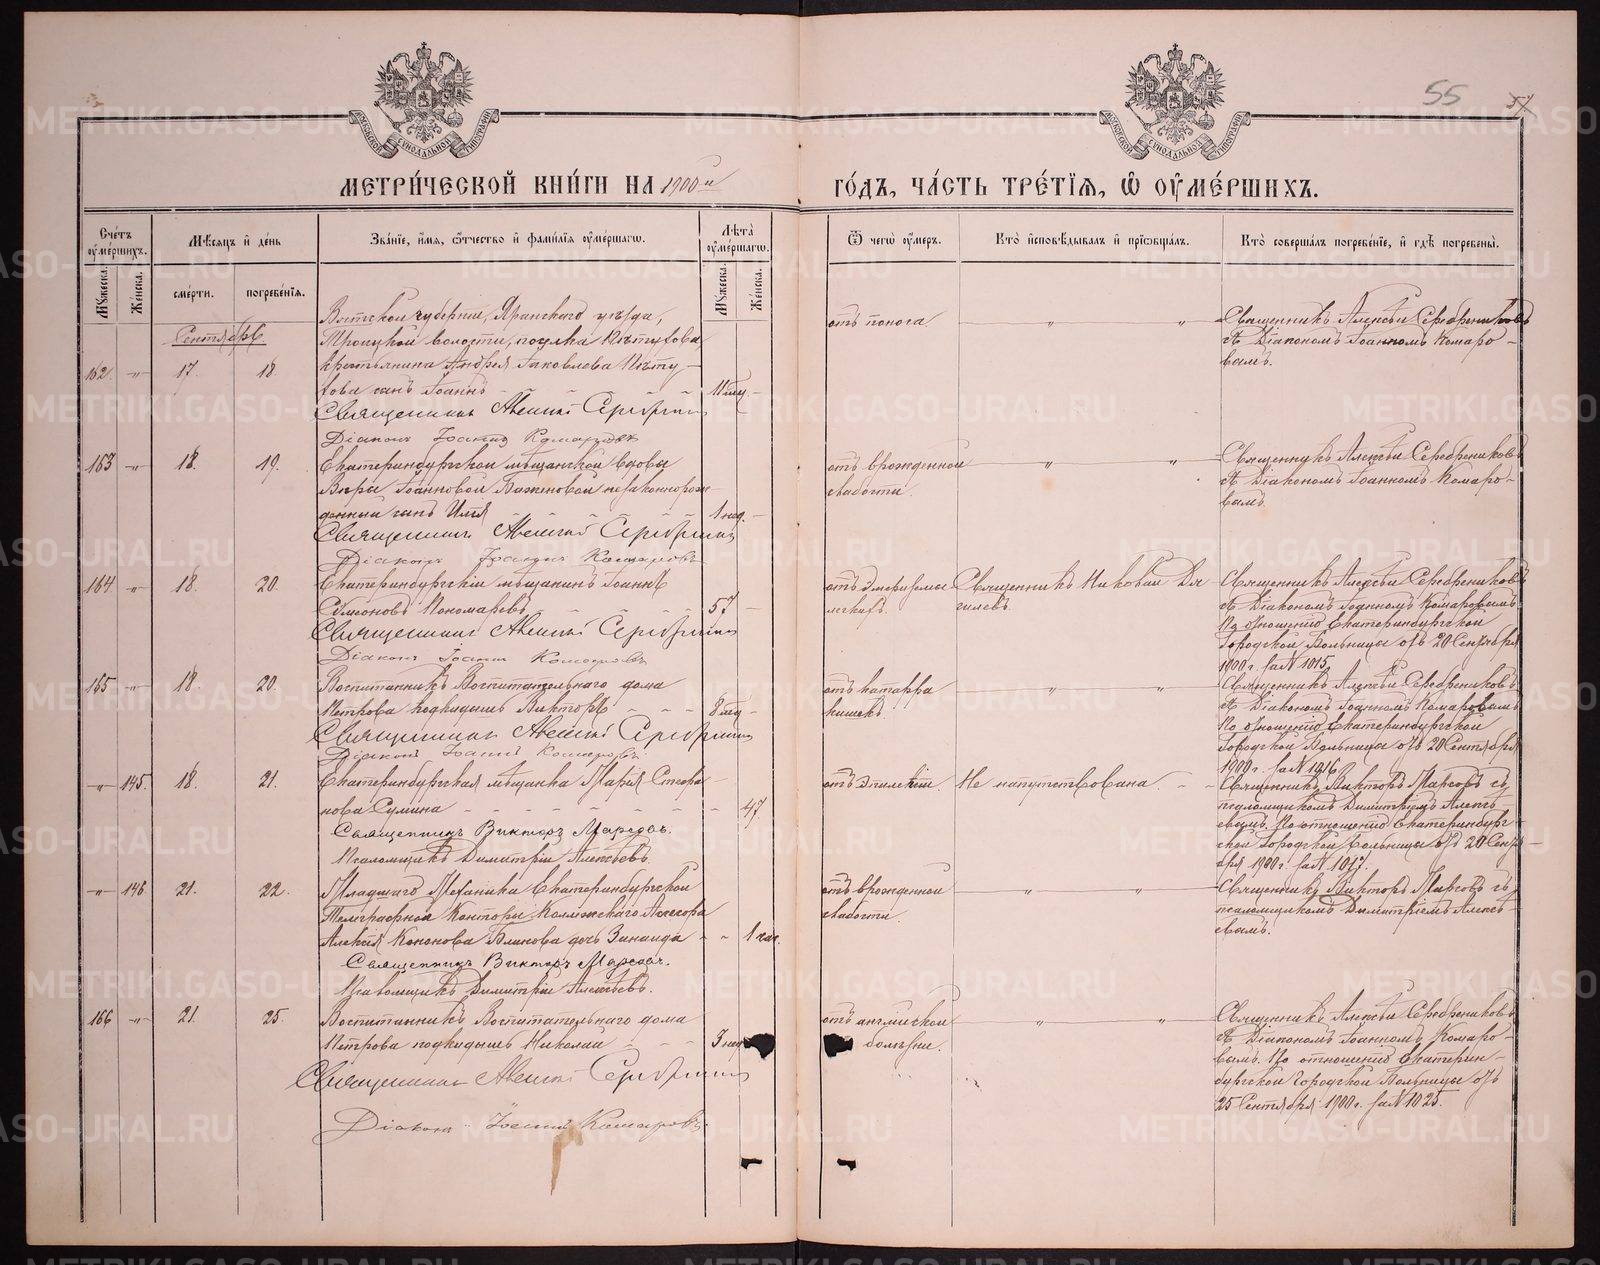 55
МЕТРИ́ЧЕСКОЙ КНИ́ГИ НА 1900й
ГО́ДЪ, ЧА́СТЬ ТРЕ́ТЇѦ, Ѡ ОУМЕ́РШИХЪ.
Сче́тъ оуме́ршихъ.
Мꙋжеска.
Женска.
Мѣсяцъ и де́нь
сме́рти.
погребе́нїѧ.
Зва́нїе, и́мѧ, ѻ҆́тчество и҆ фами́лїѧ оуме́ршагѡ.
Лѣта̀ оуме́ршагѡ.
Мꙋжеска.
Женска.
Ѿ чегѡ̀ оу́меръ.
Кто̀ и҆сповѣ́дывалъ и҆ прїѡбща́лъ.
Кто̀ соверша́лъ погребе́нїе, и҆ гдѣ̀ погребены̀.
Сентябрь
162. 17. 18.
Вятской губерніи, Яранскаго уѣзда,
волости,
крестьянина Андрея Іаковлева
сынъ Іоаннъ
Священникъ Алексій Серебрениковъ
Діаконъ Іоаннъ Комаровъ
отъ поноса.
Священникъ Алексѣй Серебрениковъ
съ Діакономъ Іоанномъ Комаро-
вымъ.
163 18. 19.
Екатеринбургской мѣщанской вдовы
Вѣры Іоанновой Баженовой незаконнорож-
денный сынъ Илія 1 нед.
Священникъ Алексій Серебрениковъ
Діаконъ Іоаннъ Комаровъ
отъ врожденной
слабости.
Священникъ Алексѣй Серебрениковъ
съ Діакономъ Іоанномъ Комаро-
вымъ.
164 18. 20.
Екатеринбургскій мѣщанинъ Іоаннъ
Сѵмеоновъ Пономаревъ 57
Священникъ Алексій Серебрениковъ
Діаконъ Іоаннъ Комаровъ
отъ эмфиземы
легкихъ.
Священникъ Николай Дя-
гилевъ.
Священникъ Алексѣй Серебрениковъ
съ Діакономъ Іоанномъ Комаровымъ
По отношенію Екатеринбургской
Городской Больницы отъ 20 Сентября
1900 г. за N 1015
165 18. 20.
Воспитанникъ Воспитательнаго дома
Петрова подкидышъ Викторъ 8 мѣс
Священникъ Алексій Серебрениковъ
Діаконъ Іоаннъ Комаровъ
отъ катарра
кишекъ.
Священникъ Алексѣй Серебрениковъ
съ Діакономъ Іоанномъ Комаровымъ
По отношенію Екатеринбургской
Городской Больницы отъ 20 Сентября
1900 г. за N 1016
145. 18. 21.
Екатеринбургская мѣщанка Марія Стефа-
нова Сумина 47
Священникъ Викторъ Марсовъ.
Псаломщикъ Димитрій Алексѣевъ
отъ эпилепсіи.
Не напутствована.
Священникъ Викторъ Марсовъ съ
псаломщикомъ Димитріемъ Алексѣ-
евымъ. По отношенію Екатеринбург-
ской Городской Больницы отъ 20 Сентя-
бря 1900 г за N 1017.
146 21. 22.
Младшаго Механика Екатеринбургской
Телеграфной Конторы Коллежскаго Ассесора
Алексія Кононова Блинова дочь Зинаида 1 час.
Священникъ Викторъ Марсовъ.
Псаломщикъ Димитрій Алексѣевъ.
отъ врожденной
слабости.
Священникъ Викторъ Марсовъ съ
псаломщикомъ Димитріемъ Алексѣ-
евымъ.
166 21. 25.
Воспитанникъ Воспитательнаго дома
Петрова подкидышъ Николай 3 нед
Священникъ Алексій Серебрениковъ
Діаконъ Іоаннъ Комаровъ.
отъ англійской
болѣзни.
Священникъ Алексѣй Серебрениковъ
съ Діакономъ Іоанномъ Комаро-
вымъ. По отношенію Екатерин-
бургской Городской Больницы отъ
25 Сентября 1900 г. за N 1025.
METRIKI.GASO-URAL.RU